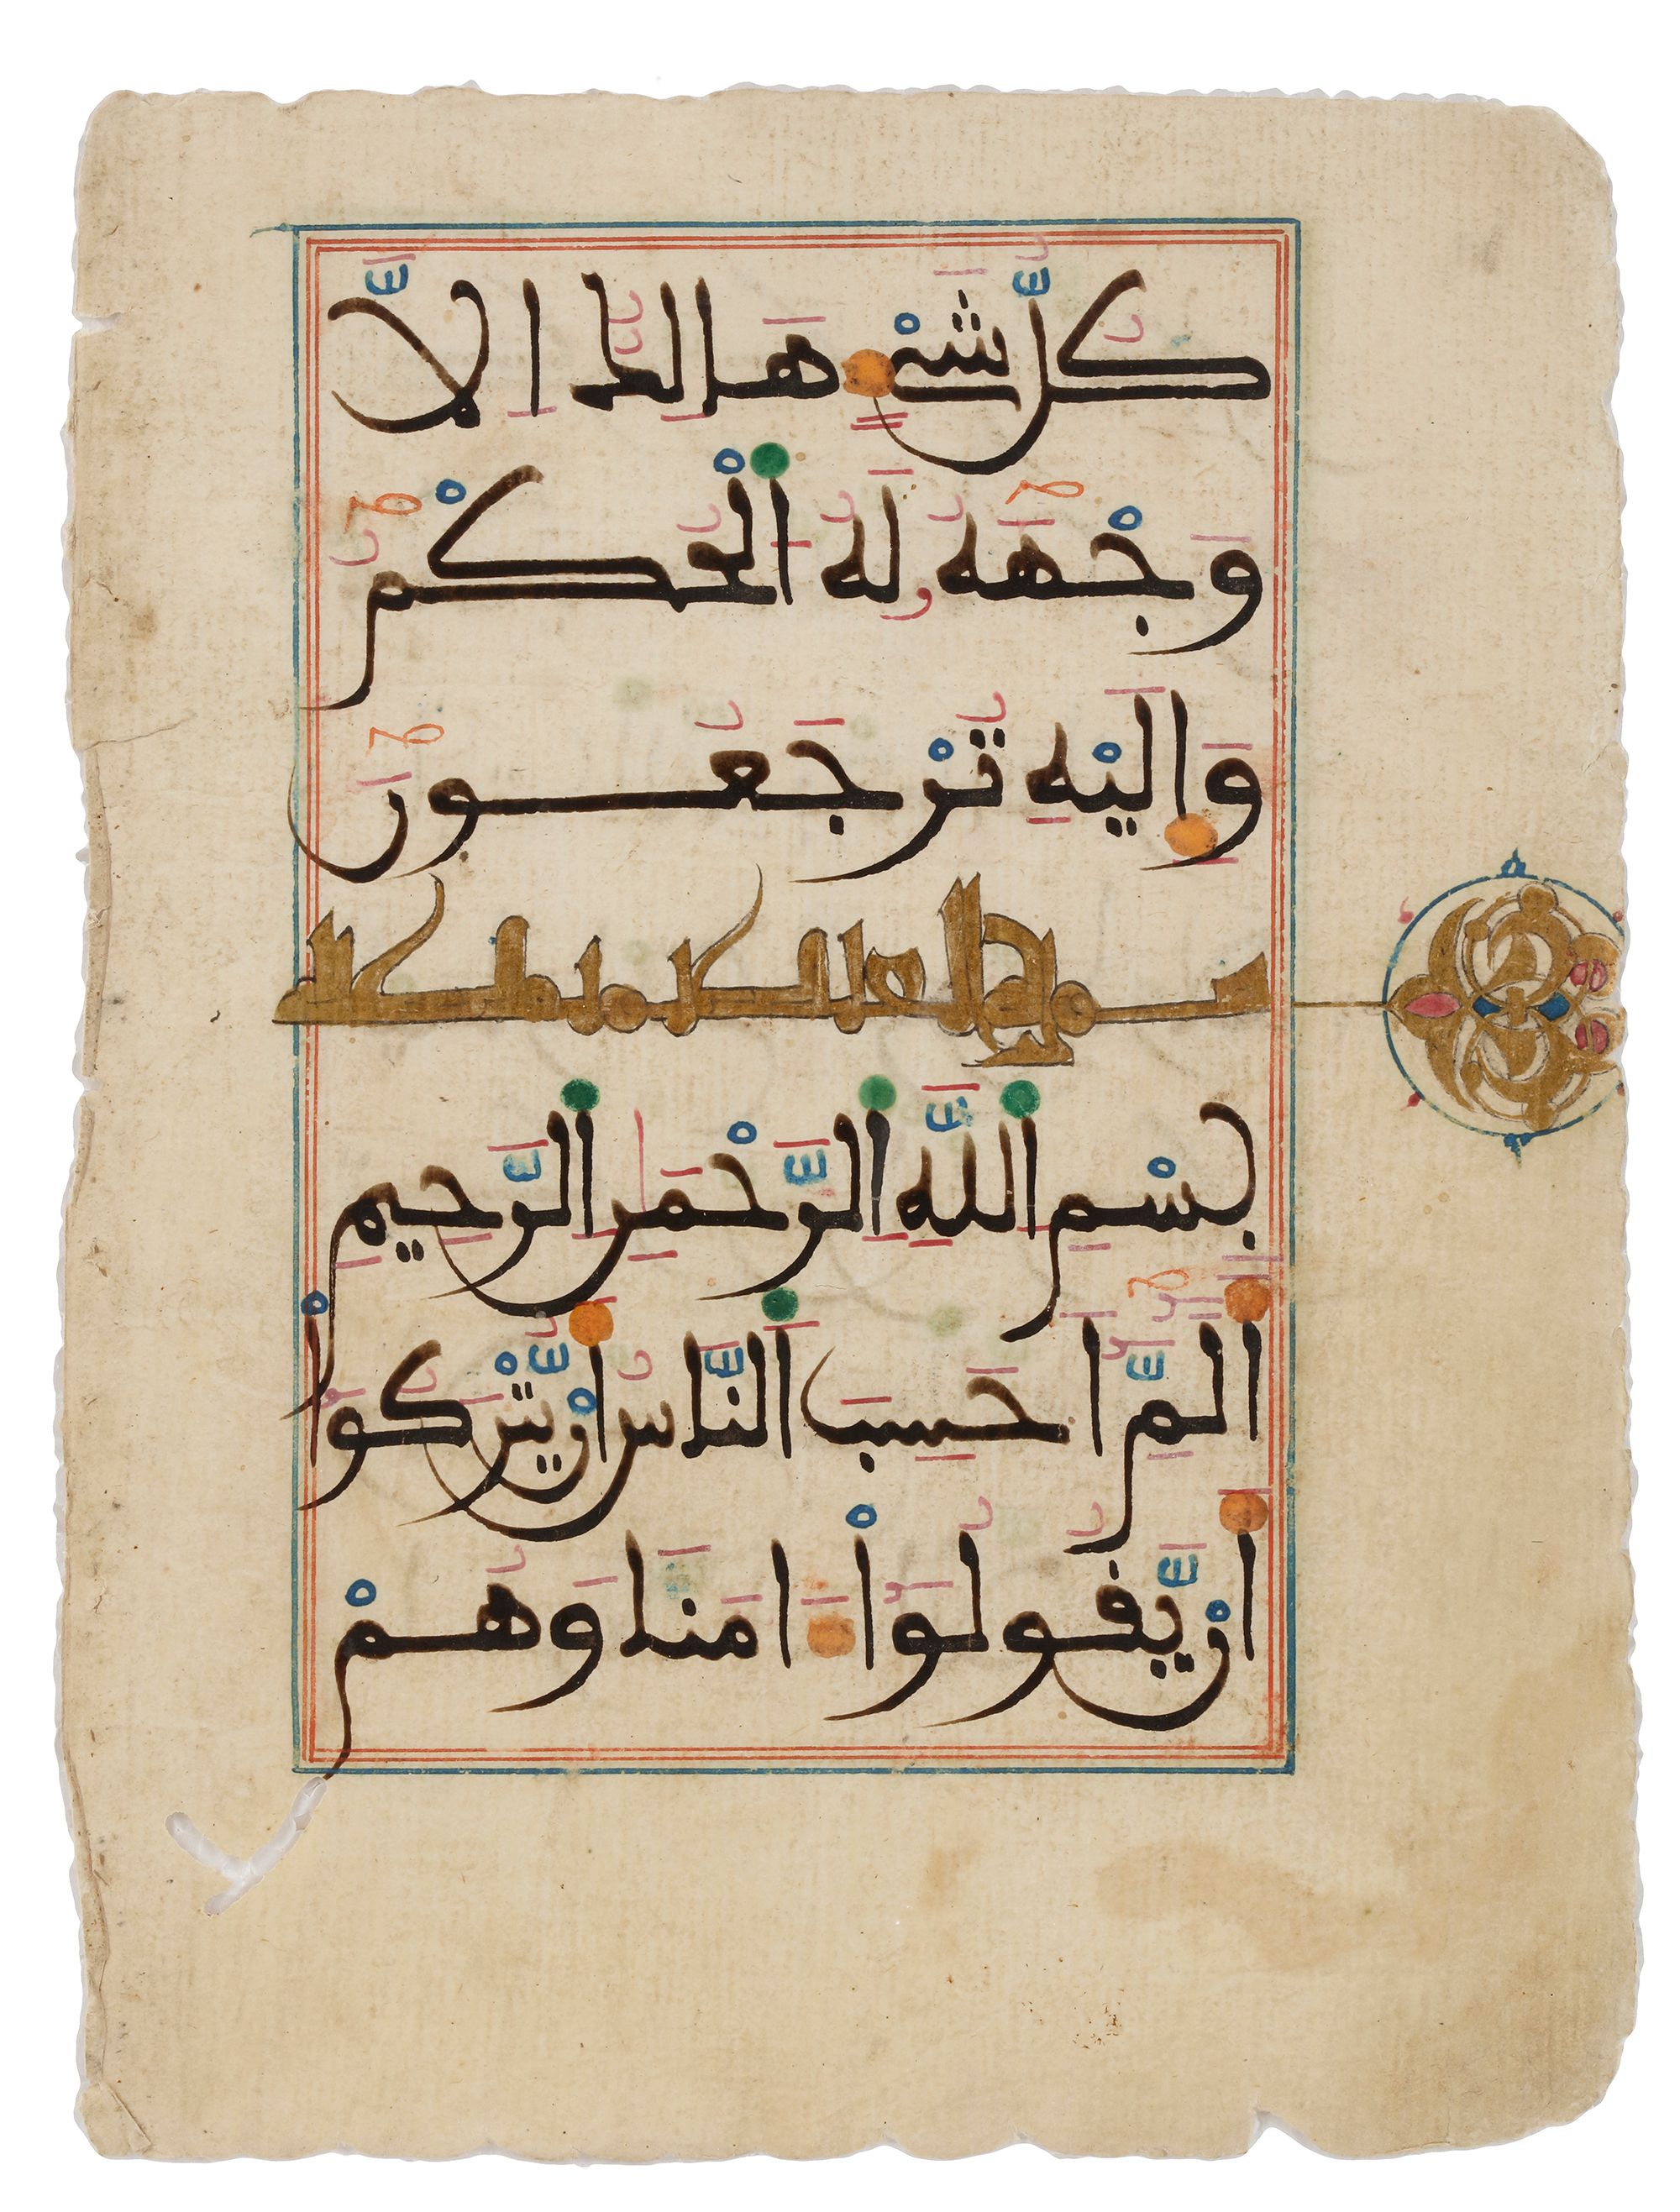 كُلُّ شَيْءٍ هَالِكٌ اِلَّا
وَجْهَهُۥ لَهُ اُ۬لْحُكْمُ
وَإِلَيْهِ تُرْجَعُونَ
سورة العنكبوت مكية
بِسْمِ اِ۬للَّهِ اِ۬لرَّحْمَٰنِ اِ۬لرَّحِيمِ
أَلَمِّٓ اَحَسِبَ اَ۬لنَّاسُ أَنْ يُّتْرَكُوٓاْ
أَنْ يَّقُولُوٓاْ ءَامَنَّا وَهُمْ